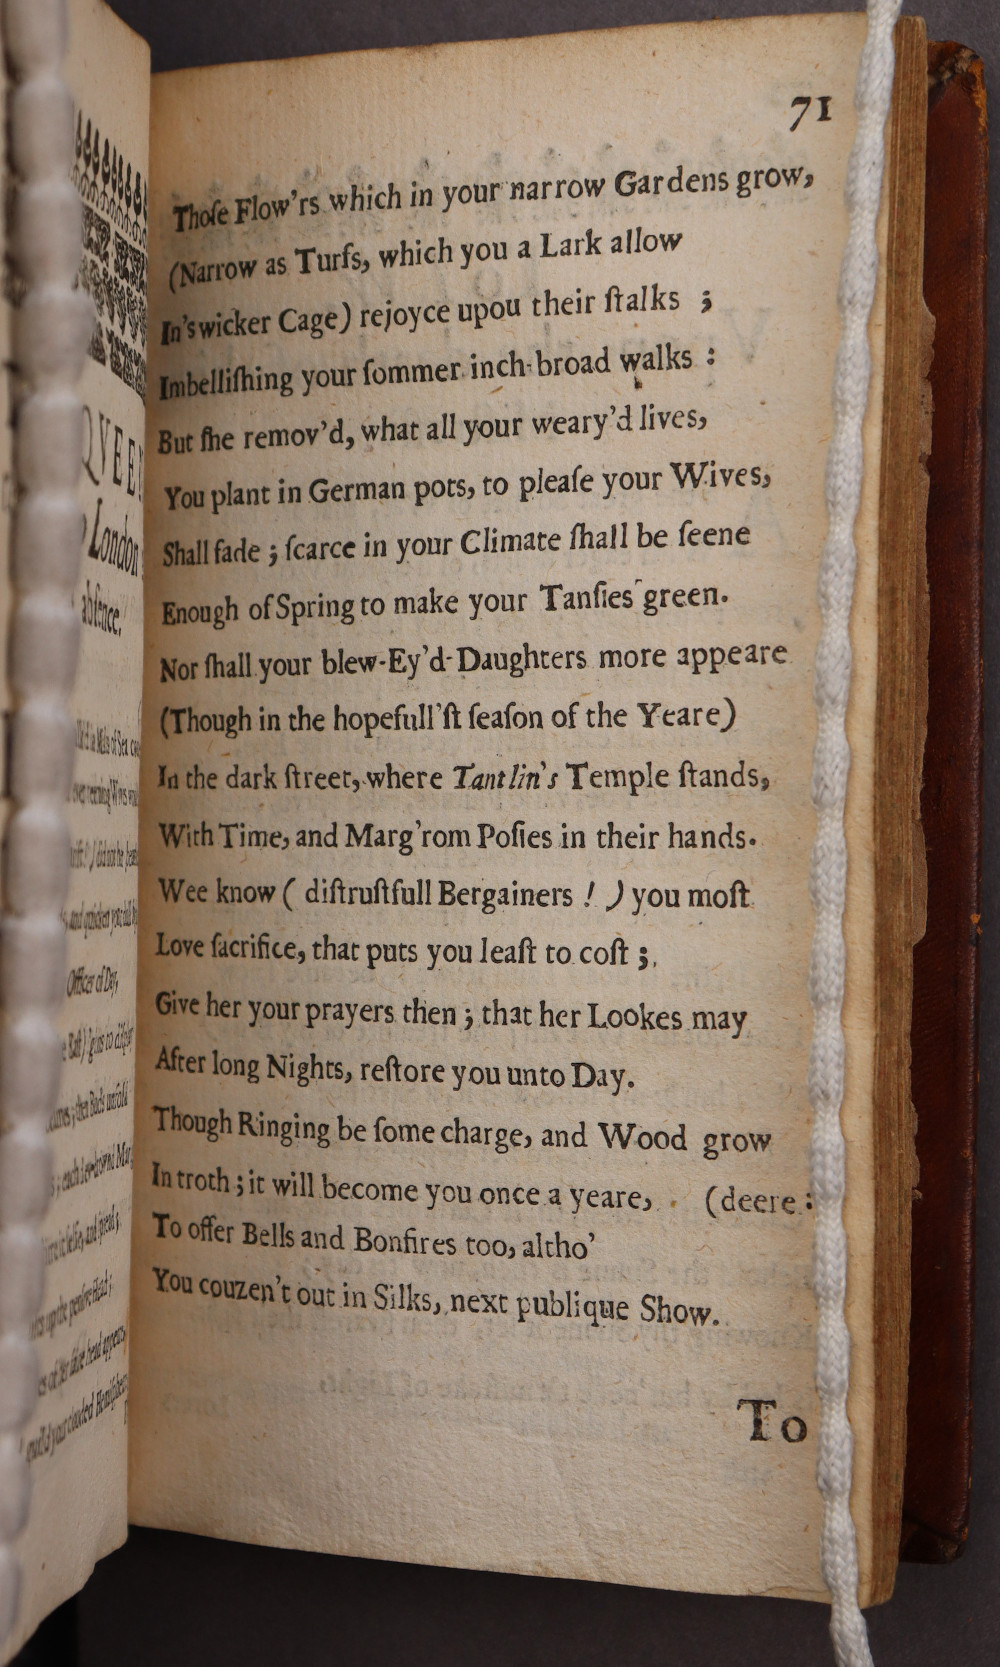 QVEE
London
absence.
Officer of Day,
71
Thoſe Flow'rs which in your narrow Gardens grow,
(Narrow as Turfs, which you a Lark allow
In's wicker Cage) rejoyce upou their ſtalks ;
Imbelliſhing your ſommer inch-broad walks :
But ſhe remov'd, what all your weary'd lives,
You plant in German pots, to pleaſe your Wives,
Shall fade ; ſcarce in your Climate ſhall be ſeene
Enough of Spring to make your Tanſies green.
Nor ſhall your blew-Ey'd-Daughters more appeare
(Though in the hopefull'ſt ſeaſon of the Yeare)
In the dark ſtreet, where Tantlin's Temple ſtands,
With Time, and Marg'rom Poſies in their hands.
Wee know ( diſtruſtfull Bergainers ! ) you moſt
Love ſacrifice, that puts you leaſt to coſt ;
Give her your prayers then ; that her Lookes may
After long Nights, reſtore you unto Day.
Though Ringing be ſome charge, and Wood grow
In troth ; it will become you once a yeare, (deere :
To offer Bells and Bonfires too, altho'
You couzen't out in Silks, next publique Show.
To